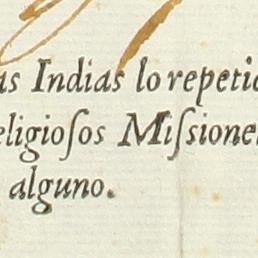 as Indias lo repetid
eligioſos Miſsione
alguno.